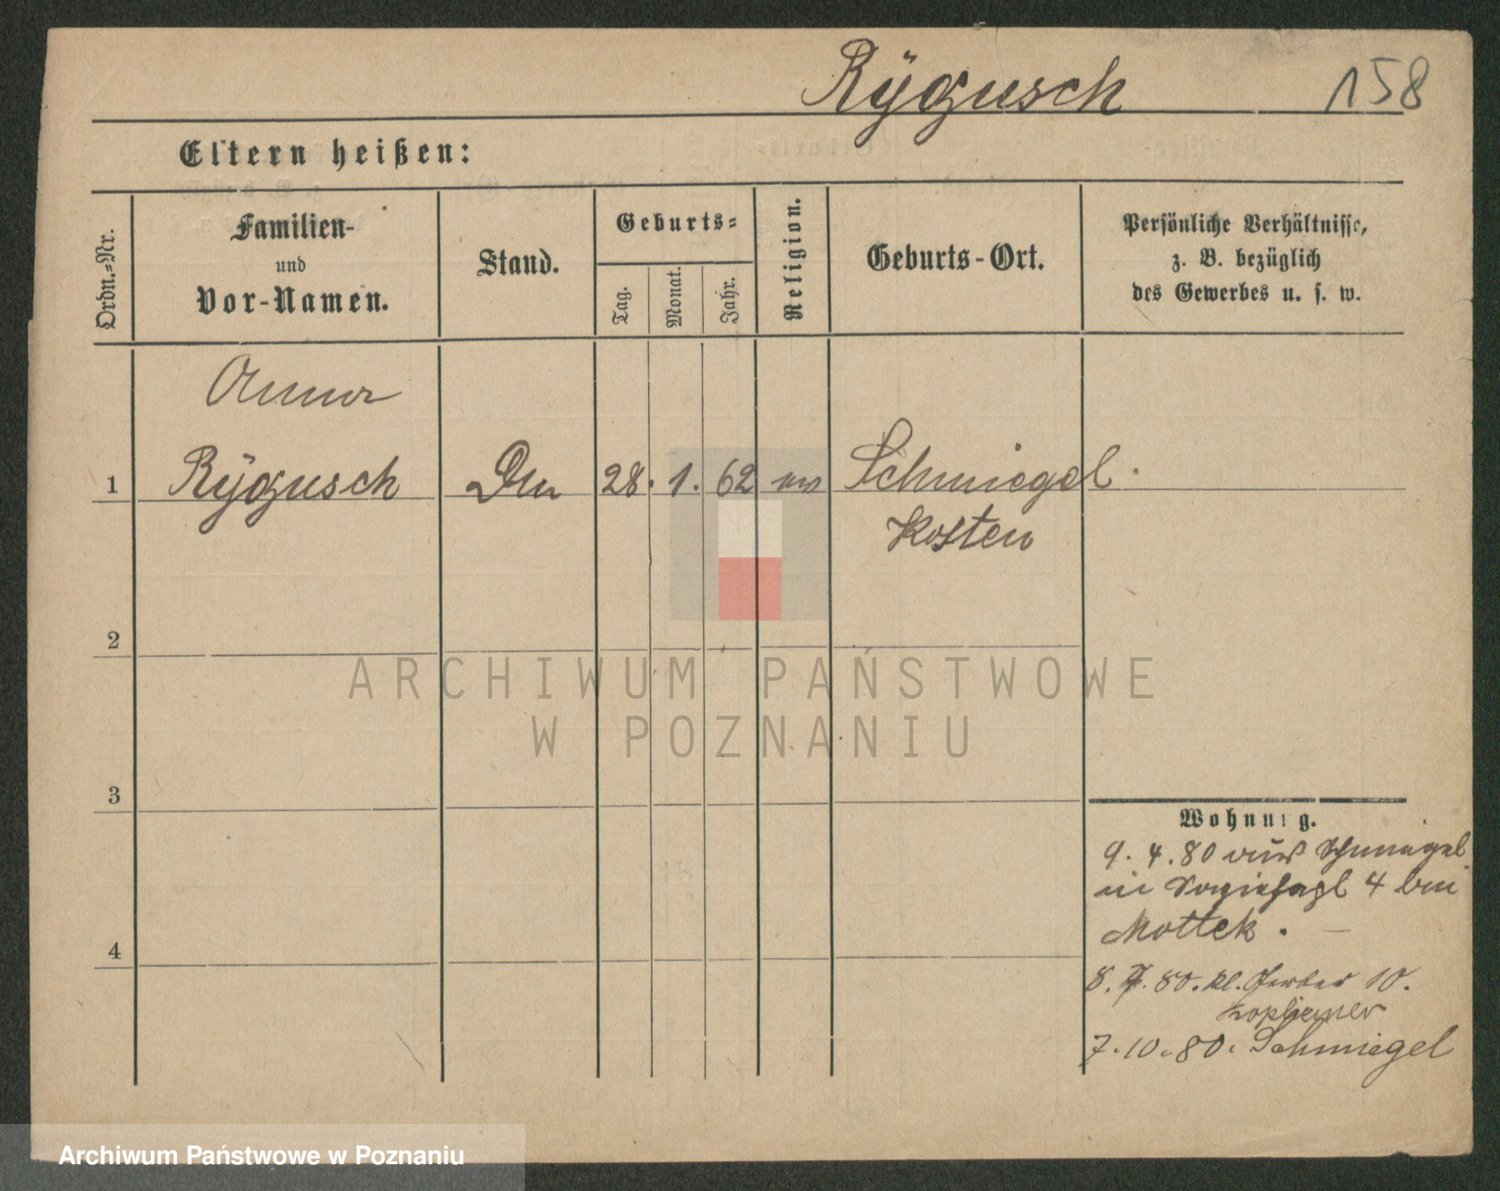 Rÿgusch 158
Eltern heißen:
Ordn.=Nr.
Familien-
und
Vor-Namen.
Stand.
Geburts=
Tag.
Monat.
Jahr.
Religion.
Geburts-Ort.
Persönliche Verhältnisse,
z. B. bezüglich
des Gewerbes u. s. w.
Anna
1 Rÿgusch 28. 1. 62 Schmiegel.
Kosten
2
3
4
Wohnung.
9. 4. 80 aus Schmiegel
in 4 bei
Mottek.
8. 7. 80. kl. Gerber 10.
7.10.80. Schmiegel
ARCHIWUM PAŃSTWOWE
W POZNANIU
Archiwum Państwowe w Poznaniu